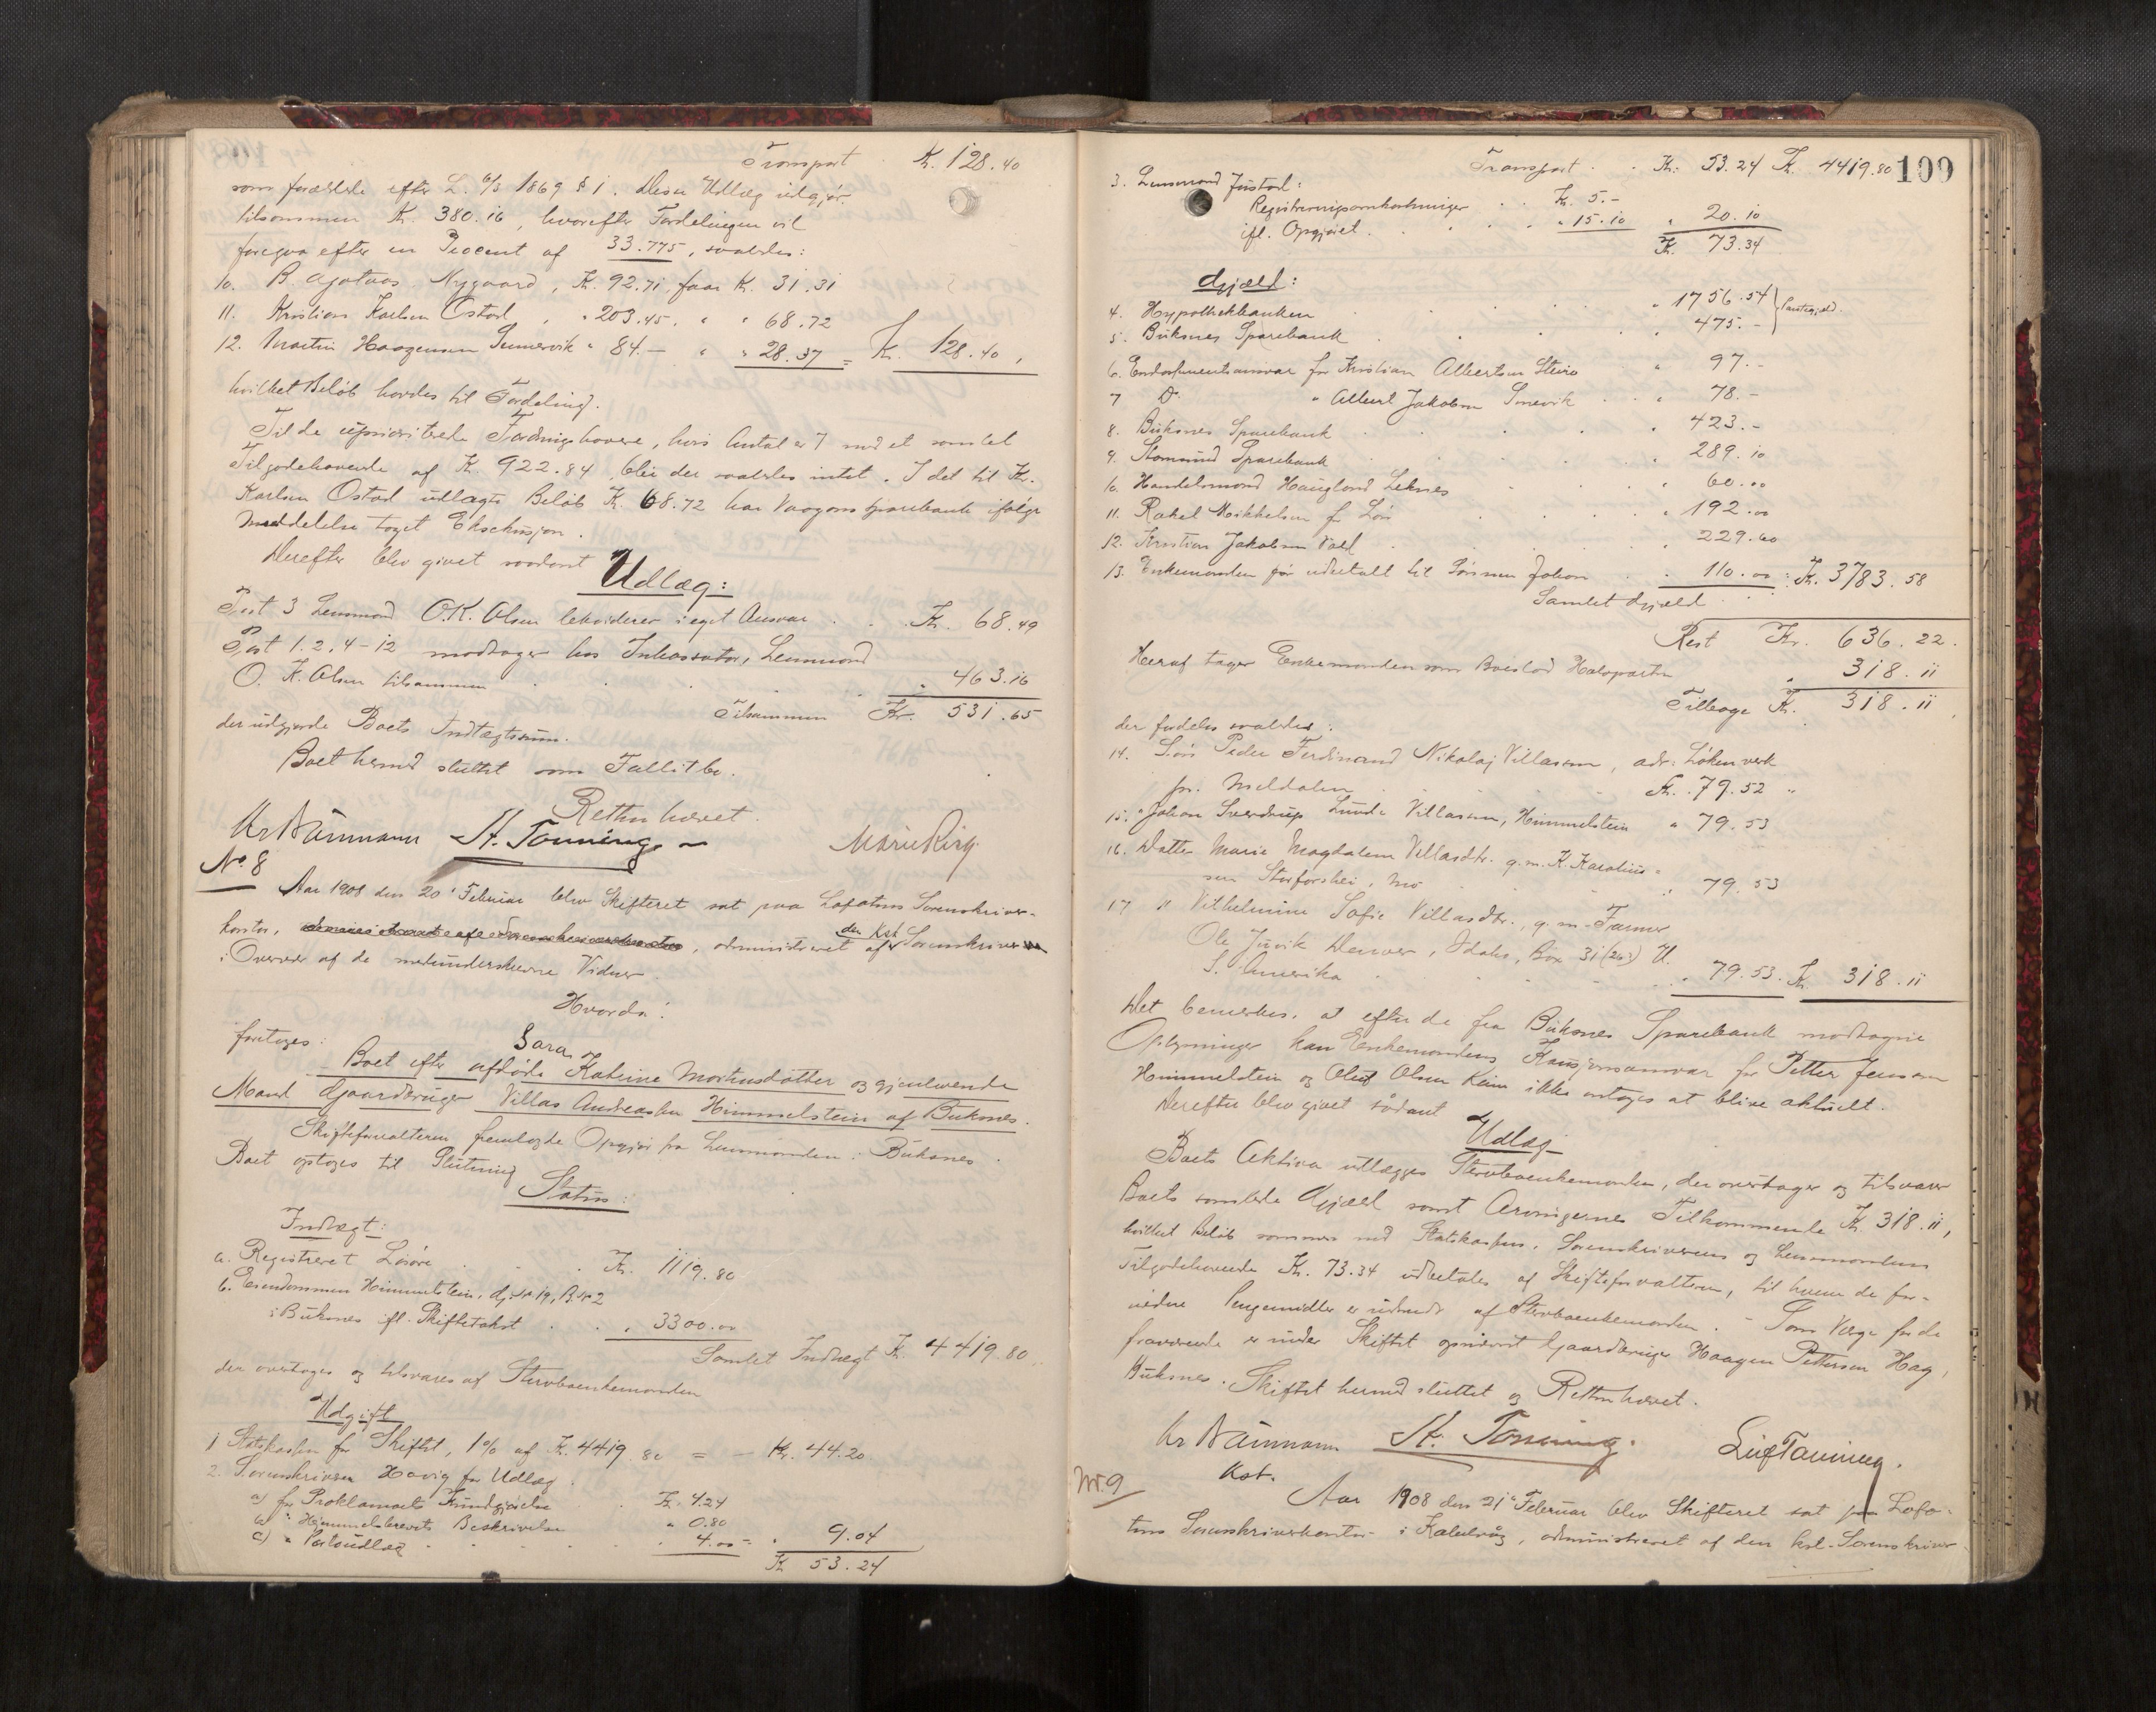 Transport Kr. 128.40
som forældede efter L. 6/3 1869 § 1. Disse Udlæg udgjør
tilsammen Kr. 380.16, hvorefter Fordelingen vil
foregaa efter en Procent af 33.775, saaledes:
10. B. Nygaard, Kr. 92.71, faar Kr. 31.31
11. Kristian Karlsen Ostad " 203.45. " " 68.72
12. Martin Haagensen " 84.— " " 28.37 = Kr. 128.40,
hvilket Beløb havdes til Fordeling.
Til de upriviterede Fordringshavere, hvis Antal er 7 med et samlet
Tilgodehavende af Kr. 922.84, blir der saaledes intet. I det til Kr.
Karlsen Ostad udlagte Beløb Kr. 68.72 har Vaagans Sparebank ifølge
Meddelelse taget Eksekusjon.
Derefter blev givet saadant
Udlæg:
Post 3 Lensmand O.K. Olsen lekviderer i eget Ansvar . . Kr. 68.49
Post 1. 2, 4-12 modtager hos Inkassator, Lensmand
O. K. Olsen tilsammen . . . " 463.16
Tilsammen Kr. 531.65
der udgjorde Boets Indtægtssum.
Boet hermed sluttet som Fallitbo.
Retten hævet.
H. Tønning
No 8
Aar 1908 den 20' Februar blev Skifteret sat paa Lofotens Sorenskriver-
kontor, administreret af den kst. Sorenskriver
i Overvær af de medunderskrevne Vidner.
Hvorda:
foretoges:
Boet efter afdøde Sara Katrine Mortensdatter og gjenlevende
Mand Gaardbruger Villas Andreassen Himmelstein af Buksnes.
Skifteforvalteren fremlagde Opgjør fra Lensmanden i Buksnes.
Boet optoges til Slutning
Status:
Indtægt:
a. Registreret Løsøre . . . Kr. 1119.80
b. Eiendommen Himmelstein, Gj. Nr 19, B. Nr 2
i Buksnes ifl. Skiftetakst . . " 3300.00
Samlet Indtægt Kr. 4419.80
der overtages og tilsvares af Stervboenkemanden
Udgift
1 Statskassen for Skiftet, 1% af Kr. 4419.80 = - Kr. 44.20
2. Sorenskriver Havig for Udlæg.
a) for Proklamaets Kundgjørelse . Kr. 4.24
b) " Hjemmelsbrevets Beskrivelse " 0.80
c) " Portoudlæg . . . . " 4.00 = " 9.04
Kr. 53.24
Transport . . Kr. 53.24 Kr. 4419.80 109
3. Lensmand Justad:
Registreringsomkostninger . . Kr. 5.-
ifl. Opgjøret . . . . " 15.10 " 20.10
Kr. 73.34
Gjæld:
4. Hypothekbanken . . . " 1756.54 } Pantegjæld.
5. Buksnes Sparebank . . . " 475.-
6. Endossementsansvar for Kristian Albertsen Steira " 97.-
7 Do " Albert Jakobsen . . " 78.-
8. Buksnes Sparebank . . . " 423.-
9. Stamsund Sparebank . . . " 289.10
10. Handelsmand Haugland Leknes . . " 60.00
11. Rakel Mikkelsen for Løn . . " 192.00
12. Kristian Jakobsen . . . " 229.60
13. Enkemanden for udbetalt til Sønnen Johan . . " 110.00 : Kr. 3783.58
Samlet Gjæld
Rest Kr. 636.22.
Heraf tager Enkemanden som Boeslod Halvparten " 318.11
Tilbage Kr. 318.11
der fordeles saaledes:
14. Søn Peder Ferdinand Nikolaj Villassen, adr: Løkenverk
pr. Meldalen . . . Kr. 79.52 "
15. " Johan Sverdrup Lunde Villassen, Himmelstein " 79.53
16. Datter Marie Magdalena Villasdtr. g. m. K. Karolius-
sen Storforshei, Mo . . . " 79.53
17 " Vilhelmine Sofie Villasdtr., g. m. Farmer
Ole Juvik Denver, Idaho, Box 31 U.
S. Amerika . . . . " 79.53. Kr. 318.11
Det bemerkes, at efter de fra Buksnes Sparebank modtagne
Oplysninger kan Enkemandens Kausjonsansvar for Petter Jensen
Himmelstein og Oluf Olsen ikke antages at blive aktuelt.
Derefter blev givet sådant
Udlæg
Boets Aktiva utlægges Stervboenkemanden, der overtager og tilsvarer
Boets samlede Gjæld samt Arvingernes Tilkommende Kr. 318.11,
hvilket Beløb sammen med Statskassens, Sorenskriverens og Lensmandens
Tilgodehavende Kr. 73.34 udbetales af Skifteforvalteren, til hvem de for-
nødne Pengemidler er indsendt af Stervboenkemanden. - Som Værge for de
fraværende er under Skiftet opnævnt Gaardbruger Haagen Pettersen Hag,
Buksnes. Skiftet hermed sluttet og Retten hævet.
H. Tønning.
Kst.
Nr. 9
Aar 1908 den 21' Februar blev Skifteret sat paa Lofo-
tens Sorenskriverkontor i Kabelvåg, administreret af den kst. Sorenskriver